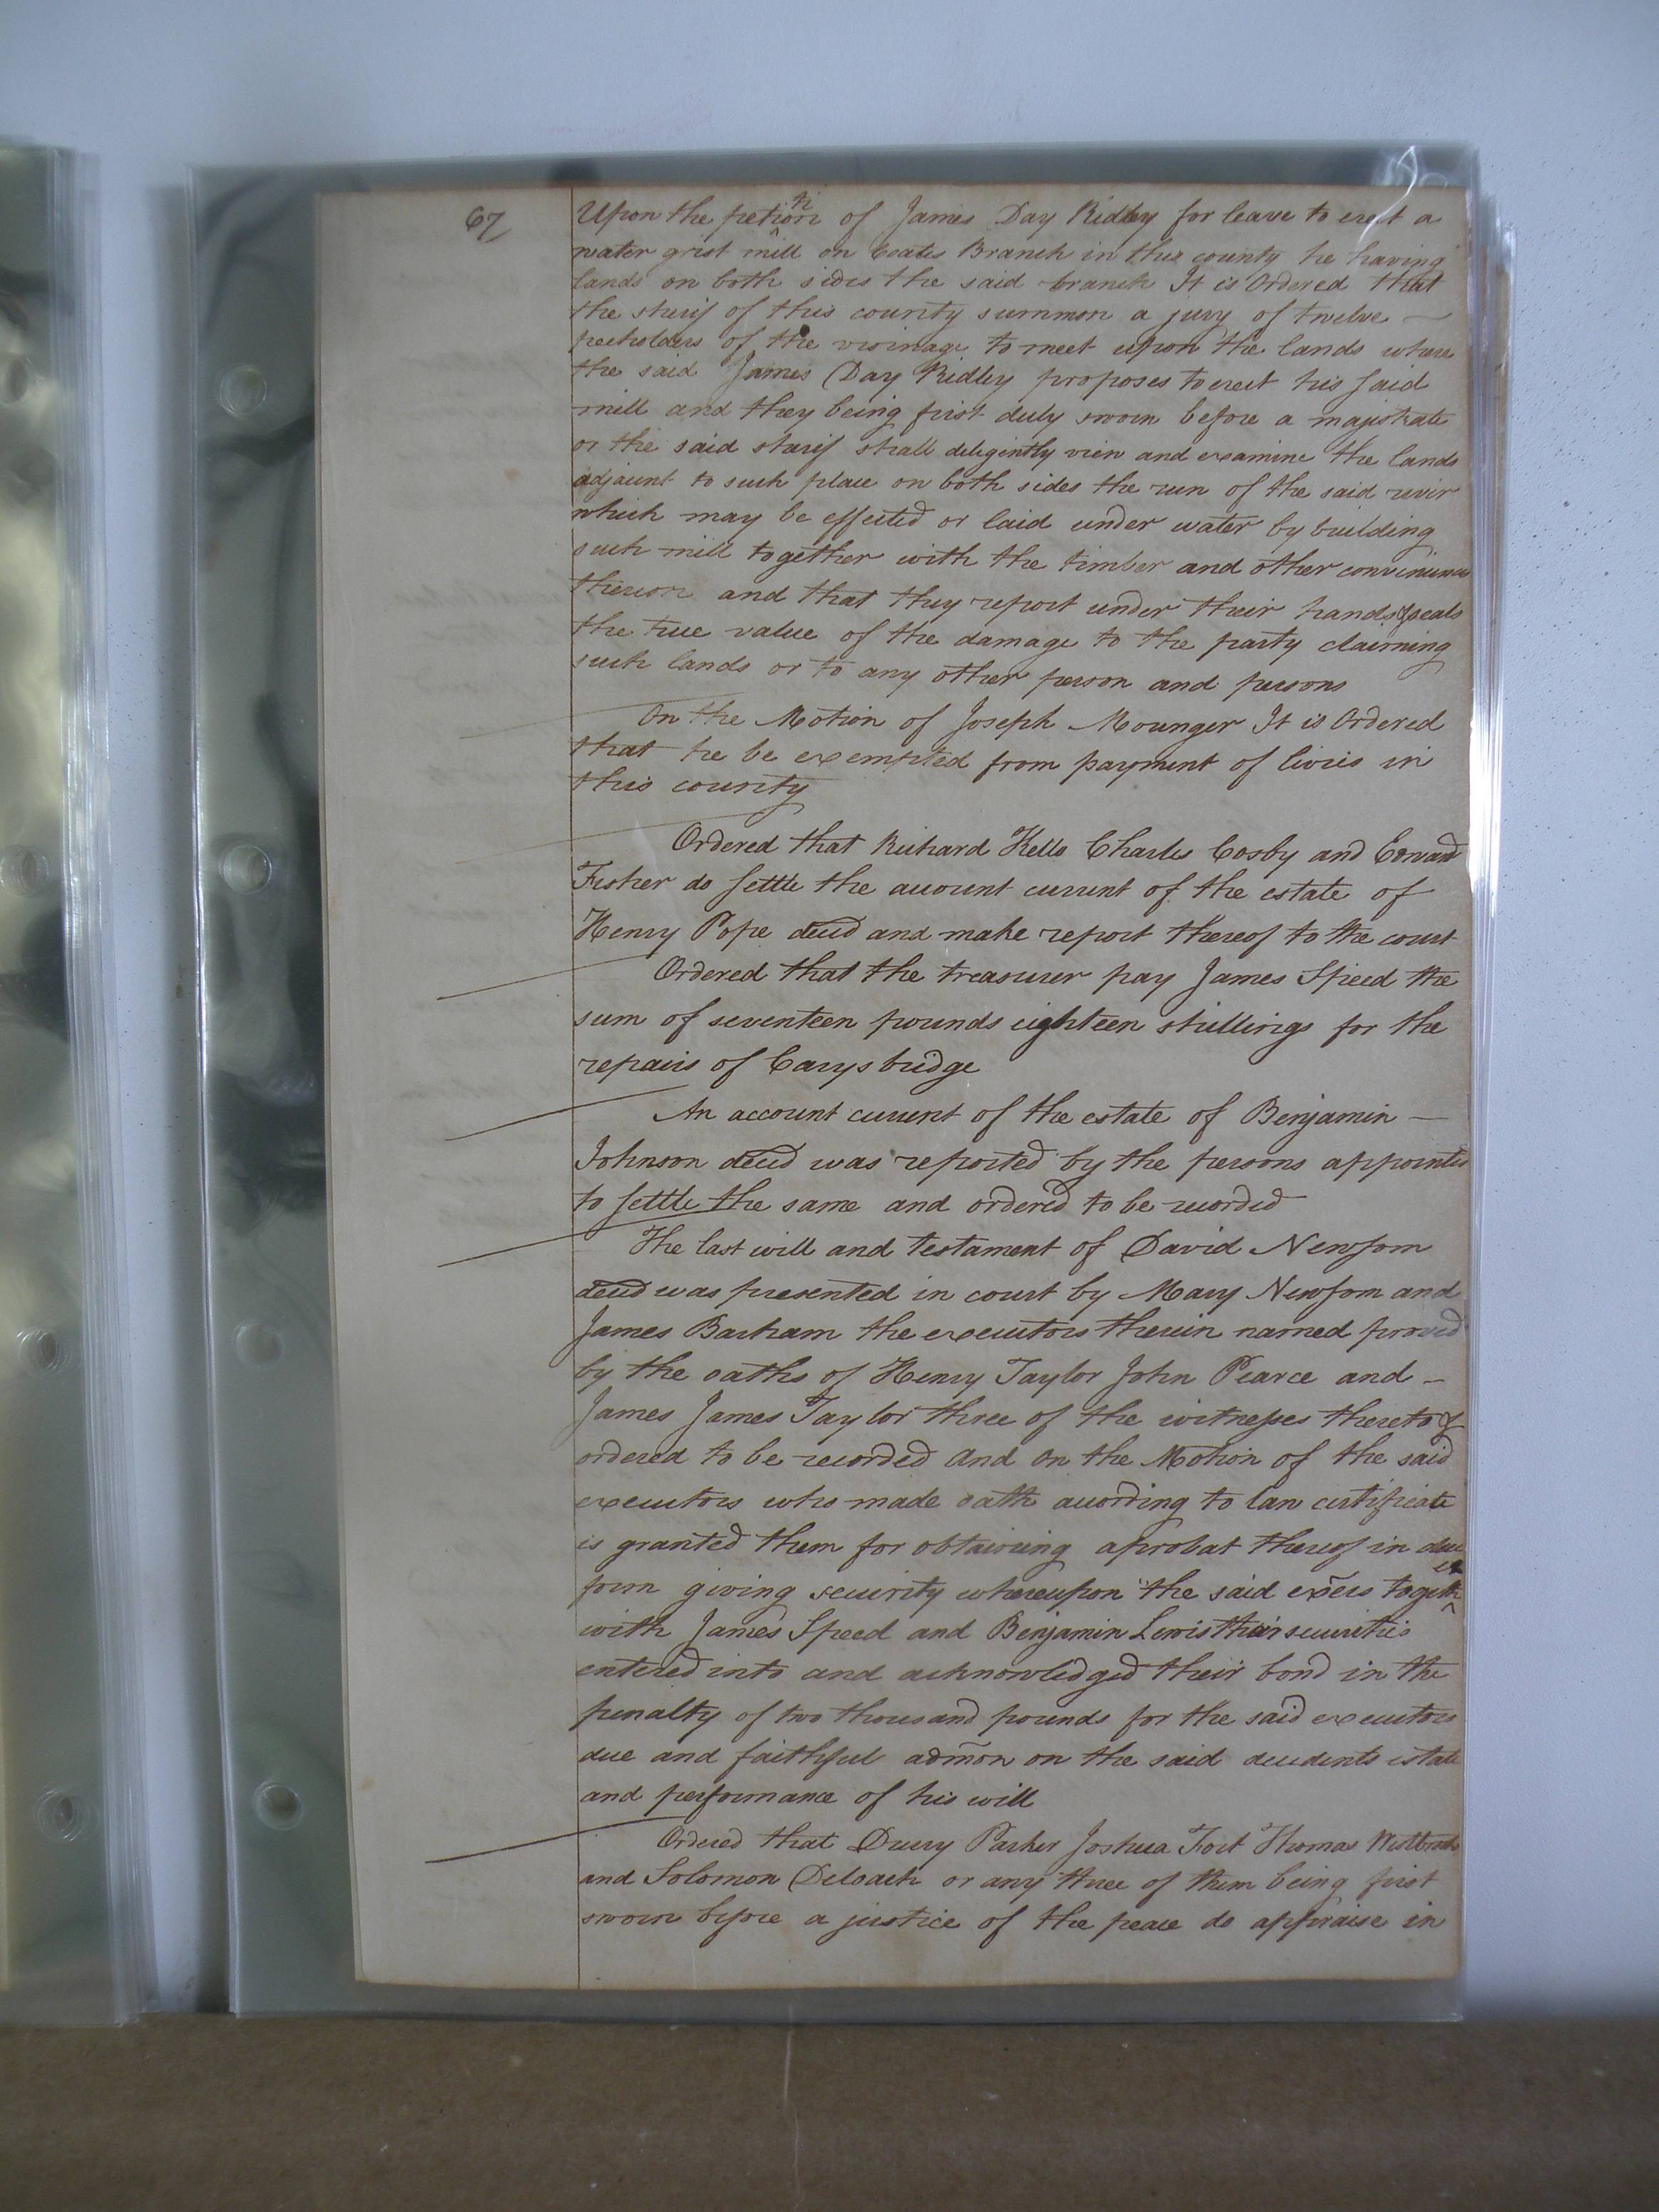 67
Upon the petition of James Day Ridley for leave to erect a
water grist mill on Coates Branch in this county he having
lands on both sides the said branch It is Ordered that
the sherif of this county summon a jury of twelve —
freeholders of the vicinage to meet upon the lands where
the said James Day Ridley proposes to erect his said
mill and they being first duly sworn before a majistrate
or the said sherif shall deligintly view and examine the lands
adjacent to such place on both sides the run of the said river
which may be effected or laid under water by building
such mill together with the timber and other conveniences
thereon and that they report under their hands & seals
the true value of the damage to the party claiming
such lands or to any other person and persons
On the Motion of Joseph Mounger It is Ordered
that he be exempted from payment of livies in
this county
Ordered that Richard Kello Charles Cosby and Edward
Fisher do settle the account current of the estate of
Henry Pope decd and make report thereof to the court
Ordered that the treasurer pay James Speed the
sum of seventeen pounds eighteen shillings for the
repairs of Carys bridge
An account current of the estate of Benjamin —
Johnson decd was reported by the persons appointed
to settle the same and ordered to be recorded
The last will and testament of David Newsom
decd was presented in court by Mary Newsom and
James Barham the executors therein named proved
by the oaths of Henry Taylor John Pearce and —
James James Taylor three of the witnesses thereto &
ordered to be recorded and on the Motion of the said
executors who made oath according to law certificate
is granted them for obtaining a probat thereof in due
form giving security whereupon the said exers together
with James Speed and Benjamin Lewis their securities
entered into and acknowledged their bond in the
penalty of two thousand pounds for the said executors
due and faithful admon on the said decedents estate
and performance of his will
Ordered that Drury Parker Joshua Fort Thomas Westbrook
and Solomon Deloach or any three of them being first
sworn before a justice of the peace do appraise in